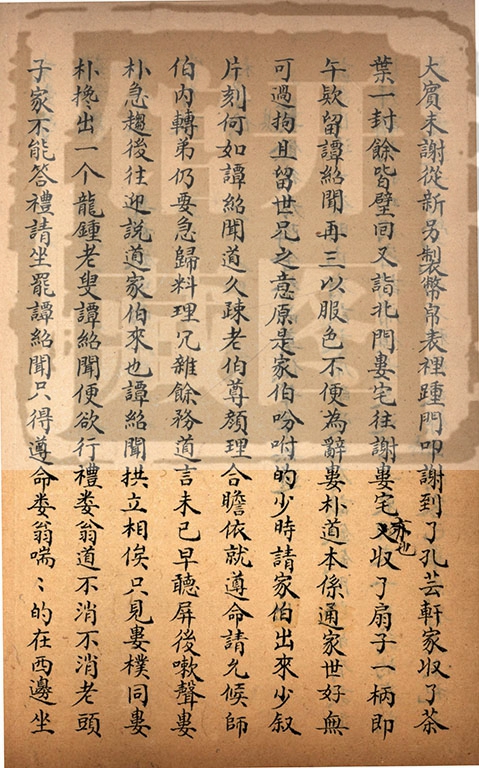 大賓未謝從新另製幣帛表裡踵門叩謝到了孔芸軒家収了茶
葉一封餘皆壁囬又詣北門婁宅往謝婁宅亦也収了扇子一柄即
午欵留譚紹聞再三以服色不便為辭婁朴道本係通家世好無
可過拘且留世兄之意原是家伯吩咐的少時請家伯出來少叙
片刻何如譚紹聞道久疎老伯尊顔理合瞻依就遵命請允候師
伯内轉弟仍要急歸料理冗雜餘務道言未已早聽屏後嗽聲婁
朴急趨後往迎說道家伯來也譚紹聞拱立相俟只見婁樸同婁
朴搀出一个龍鍾老叟譚紹聞便欲行禮娄翁道不消不消老頭
子家不能答禮請坐罷譚紹聞只得遵命娄翁喘〻的在西邊坐